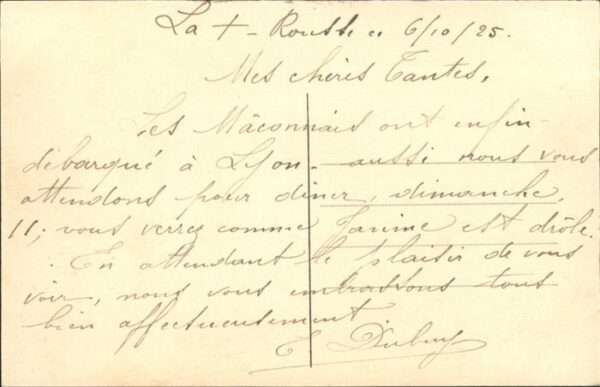 La + - Rousse le 6/10/25.
Mes chères Tantes.
Les Mâconnais ont enfin
débarqué à Lyon. aussi nous vous
attendons pour dîner, dimanche,
11; vous verrez comme Janine est drôle.
En attendant le plaisir de vous
voir, nous vous embrassons tous
bien affectueusement